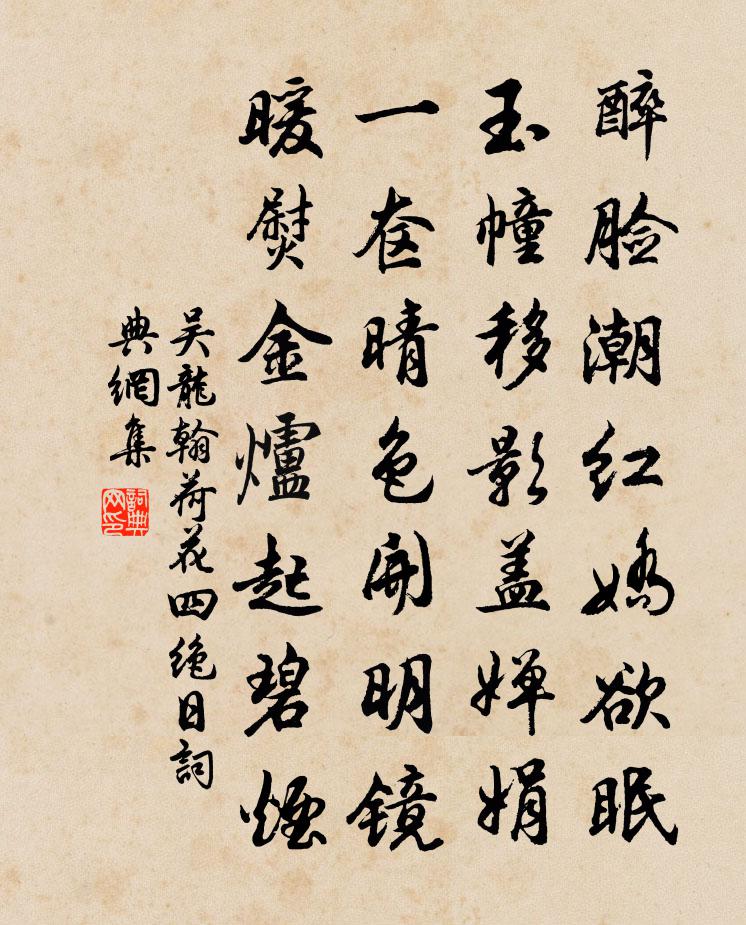 醉脸潮红娇欲眠
玉幢移影盖婵娟
一奁晴色开明镜
暖熨金爐起碧煙
吴龍翰荷花四绝日詞
典網集
詞典
网印